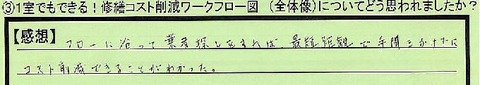 ③1室でもできる!修繕コスト削減ワークフロー図 (全体像)についてどう思われましたか?
【感想】 フローに沿って業者探しをすれば 最短距離で手間をかけずに
コスト削減できることがわかった。